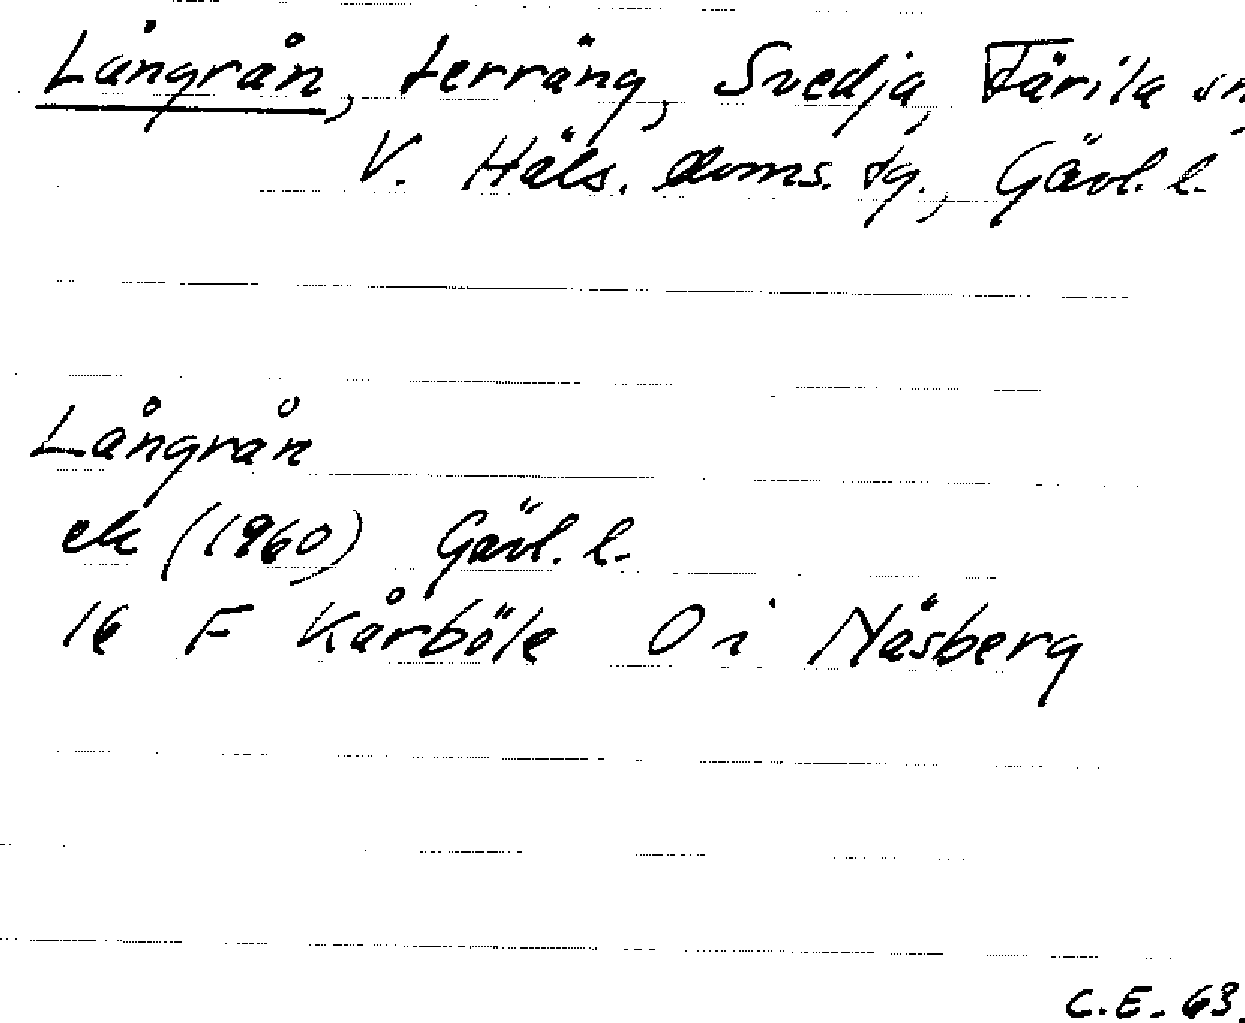 Långrån, terräng, Svedja, Färila sn,
V. Häls. doms. tg., Gävl. l.
Långrån
ek (1960) Gävl. l.
16 F Kårböle O i Nåsberg
C.E. 63.